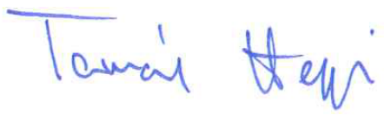 Tamás Heppi